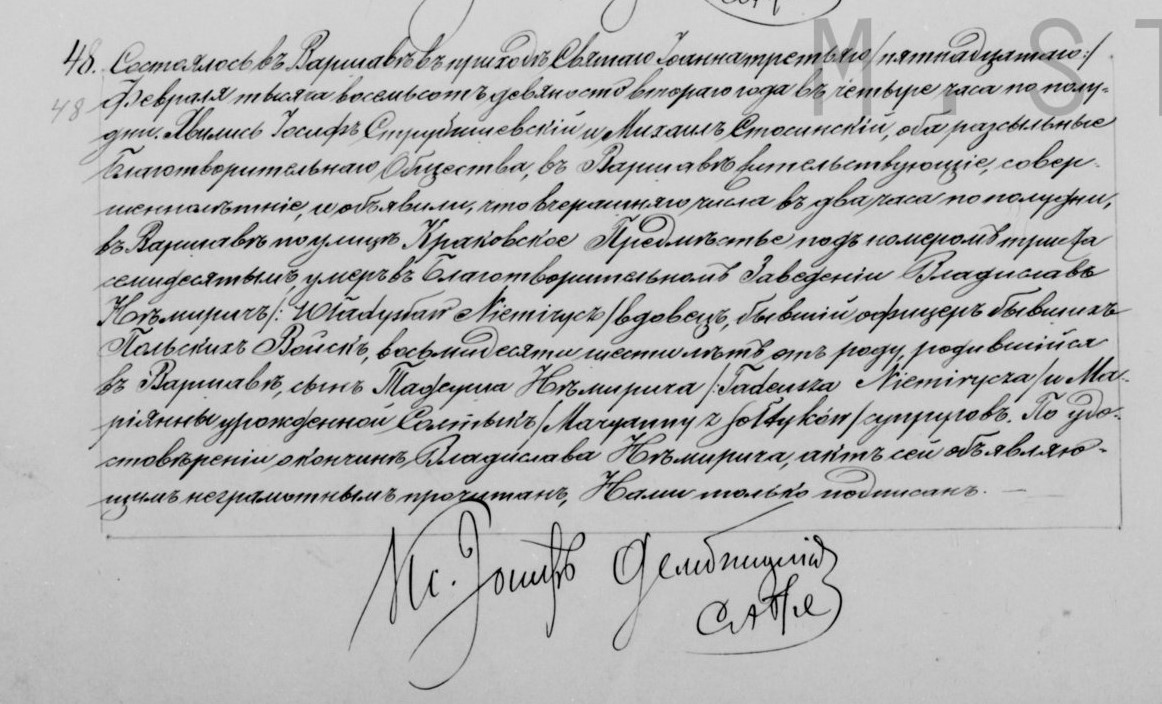 M P S T
48. Состоялось въ Варшавѣ въ приходѣ Святаго Іоанна третьяго /пятнадцатаго:/
48 Февраля тысяча восемьсотъ девяносто втораго года въ четыре часа по полу-
дни. Явились Іосифъ и Михаилъ Стосинскій, оба разсыльные
Благотворительнаго Общества, въ Варшавѣ жительствующіе, совер-
шеннолѣтніе, и объявили, что вчерашняго числа въ два часа по полудни,
въ Варшавѣ по улицѣ Краковское Предмѣстье подъ номеромъ триста
семидесятымъ умеръ въ Благотворительномъ Заведеніи Владиславъ
Нѣмиричъ /: Władysław Niemirycz / вдовецъ, бывшій офицеръ бывшихъ
Польскихъ Войскъ, восьмидесяти шести лѣтъ отъ роду, родившійся
въ Варшавѣ, сынъ Тадеуша Нѣмирича /: Tadeusza Niemirycza / и Ма-
ріянны урожденной Солтыкъ / Maryanny z Sołtyków / супруговъ. По удо-
стовѣреніи о кончинѣ Владислава Нѣмирича, актъ сей объявляю-
щимъ неграмотнымъ прочитанъ, Нами только подписанъ. —
Кс. Іосифъ